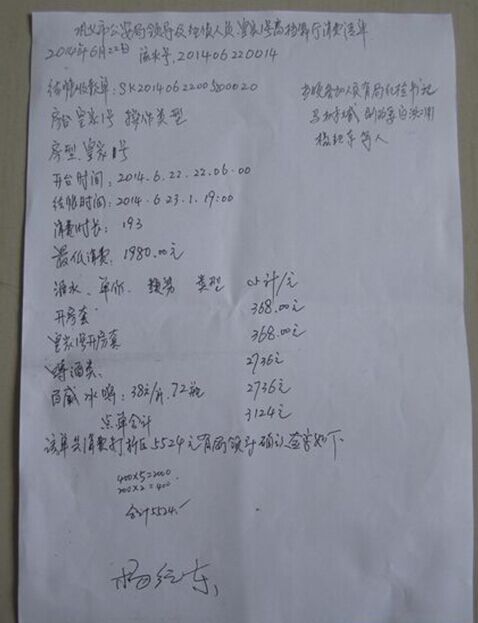 巩义市公安局领导及经侦人员皇家1号高档餐厅消费清单
2014年6月22日 流水号.201406220014
结帐收款单:SK2014062200500020
房台皇家1号 操作类型
房型皇家1号
开台时间:2014.6.22.22.06.00
结帐时间:2014.6.23.1.19:00
消费时长:193
最低消费:1980.00元
酒水、单价、数量 类型 小计/元
开房套 368.00元
皇家1号开房套 368.00元
啤酒类: 2736元
百威冰啤:38元/瓶.72瓶 2736元
点单合计 3124元
该单共消费打折后5524元有局领导确认签字如下
400×5=2000
200×2=400
合计5524.
杨红东
当晚参加人员有局纪检书记
杨红东等人